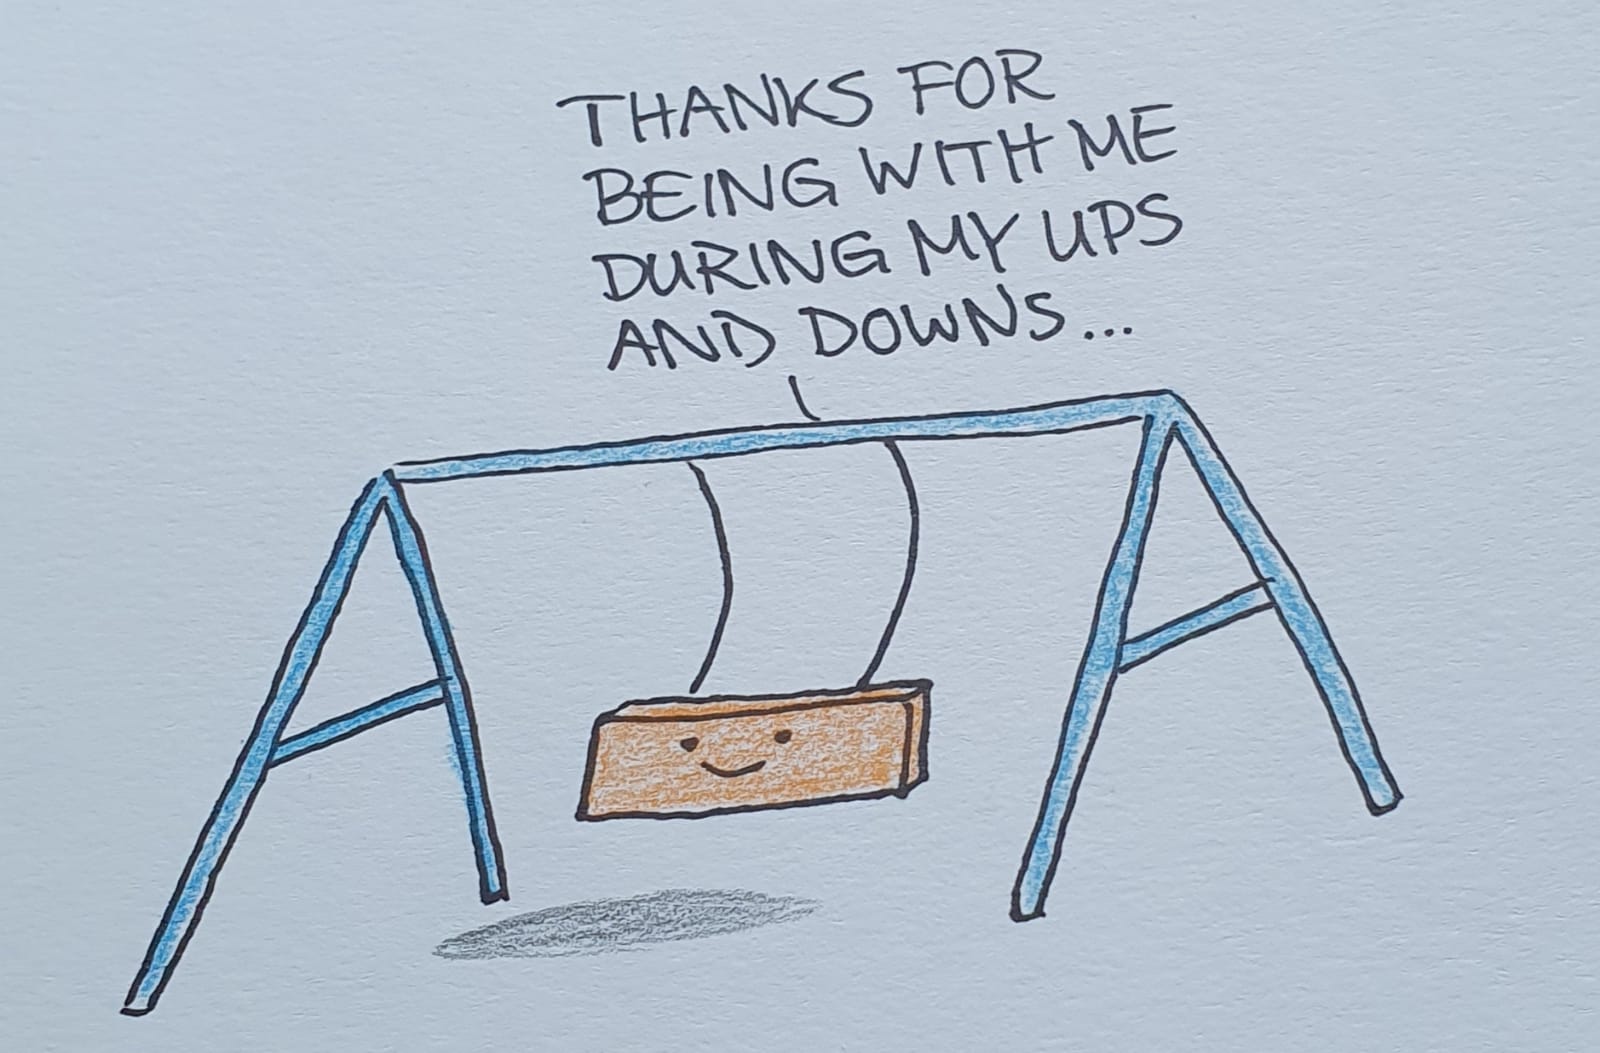 THANKS FOR
BEING WITH ME
DURING MY UPS
AND DOWNS...